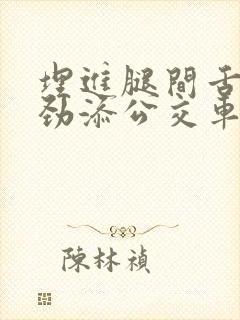 埋進腿間舌
勁添公交車
陳林禎